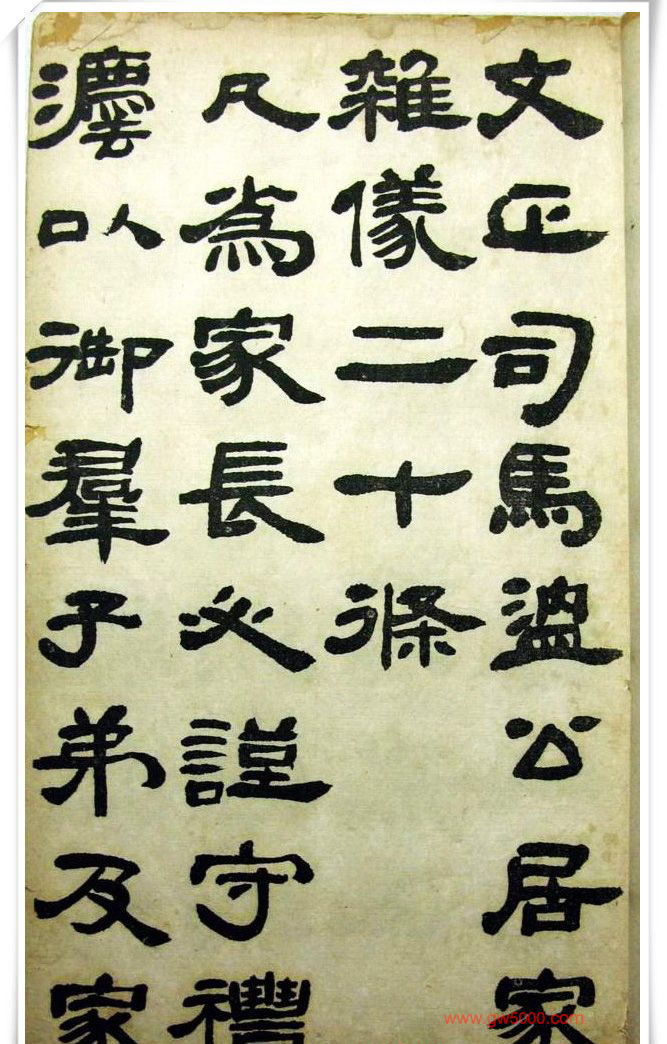 文正司馬溫公居家
雜儀二十條
凡為家長必謹守禮
灋以御羣子弟及家
www.gw5000.com